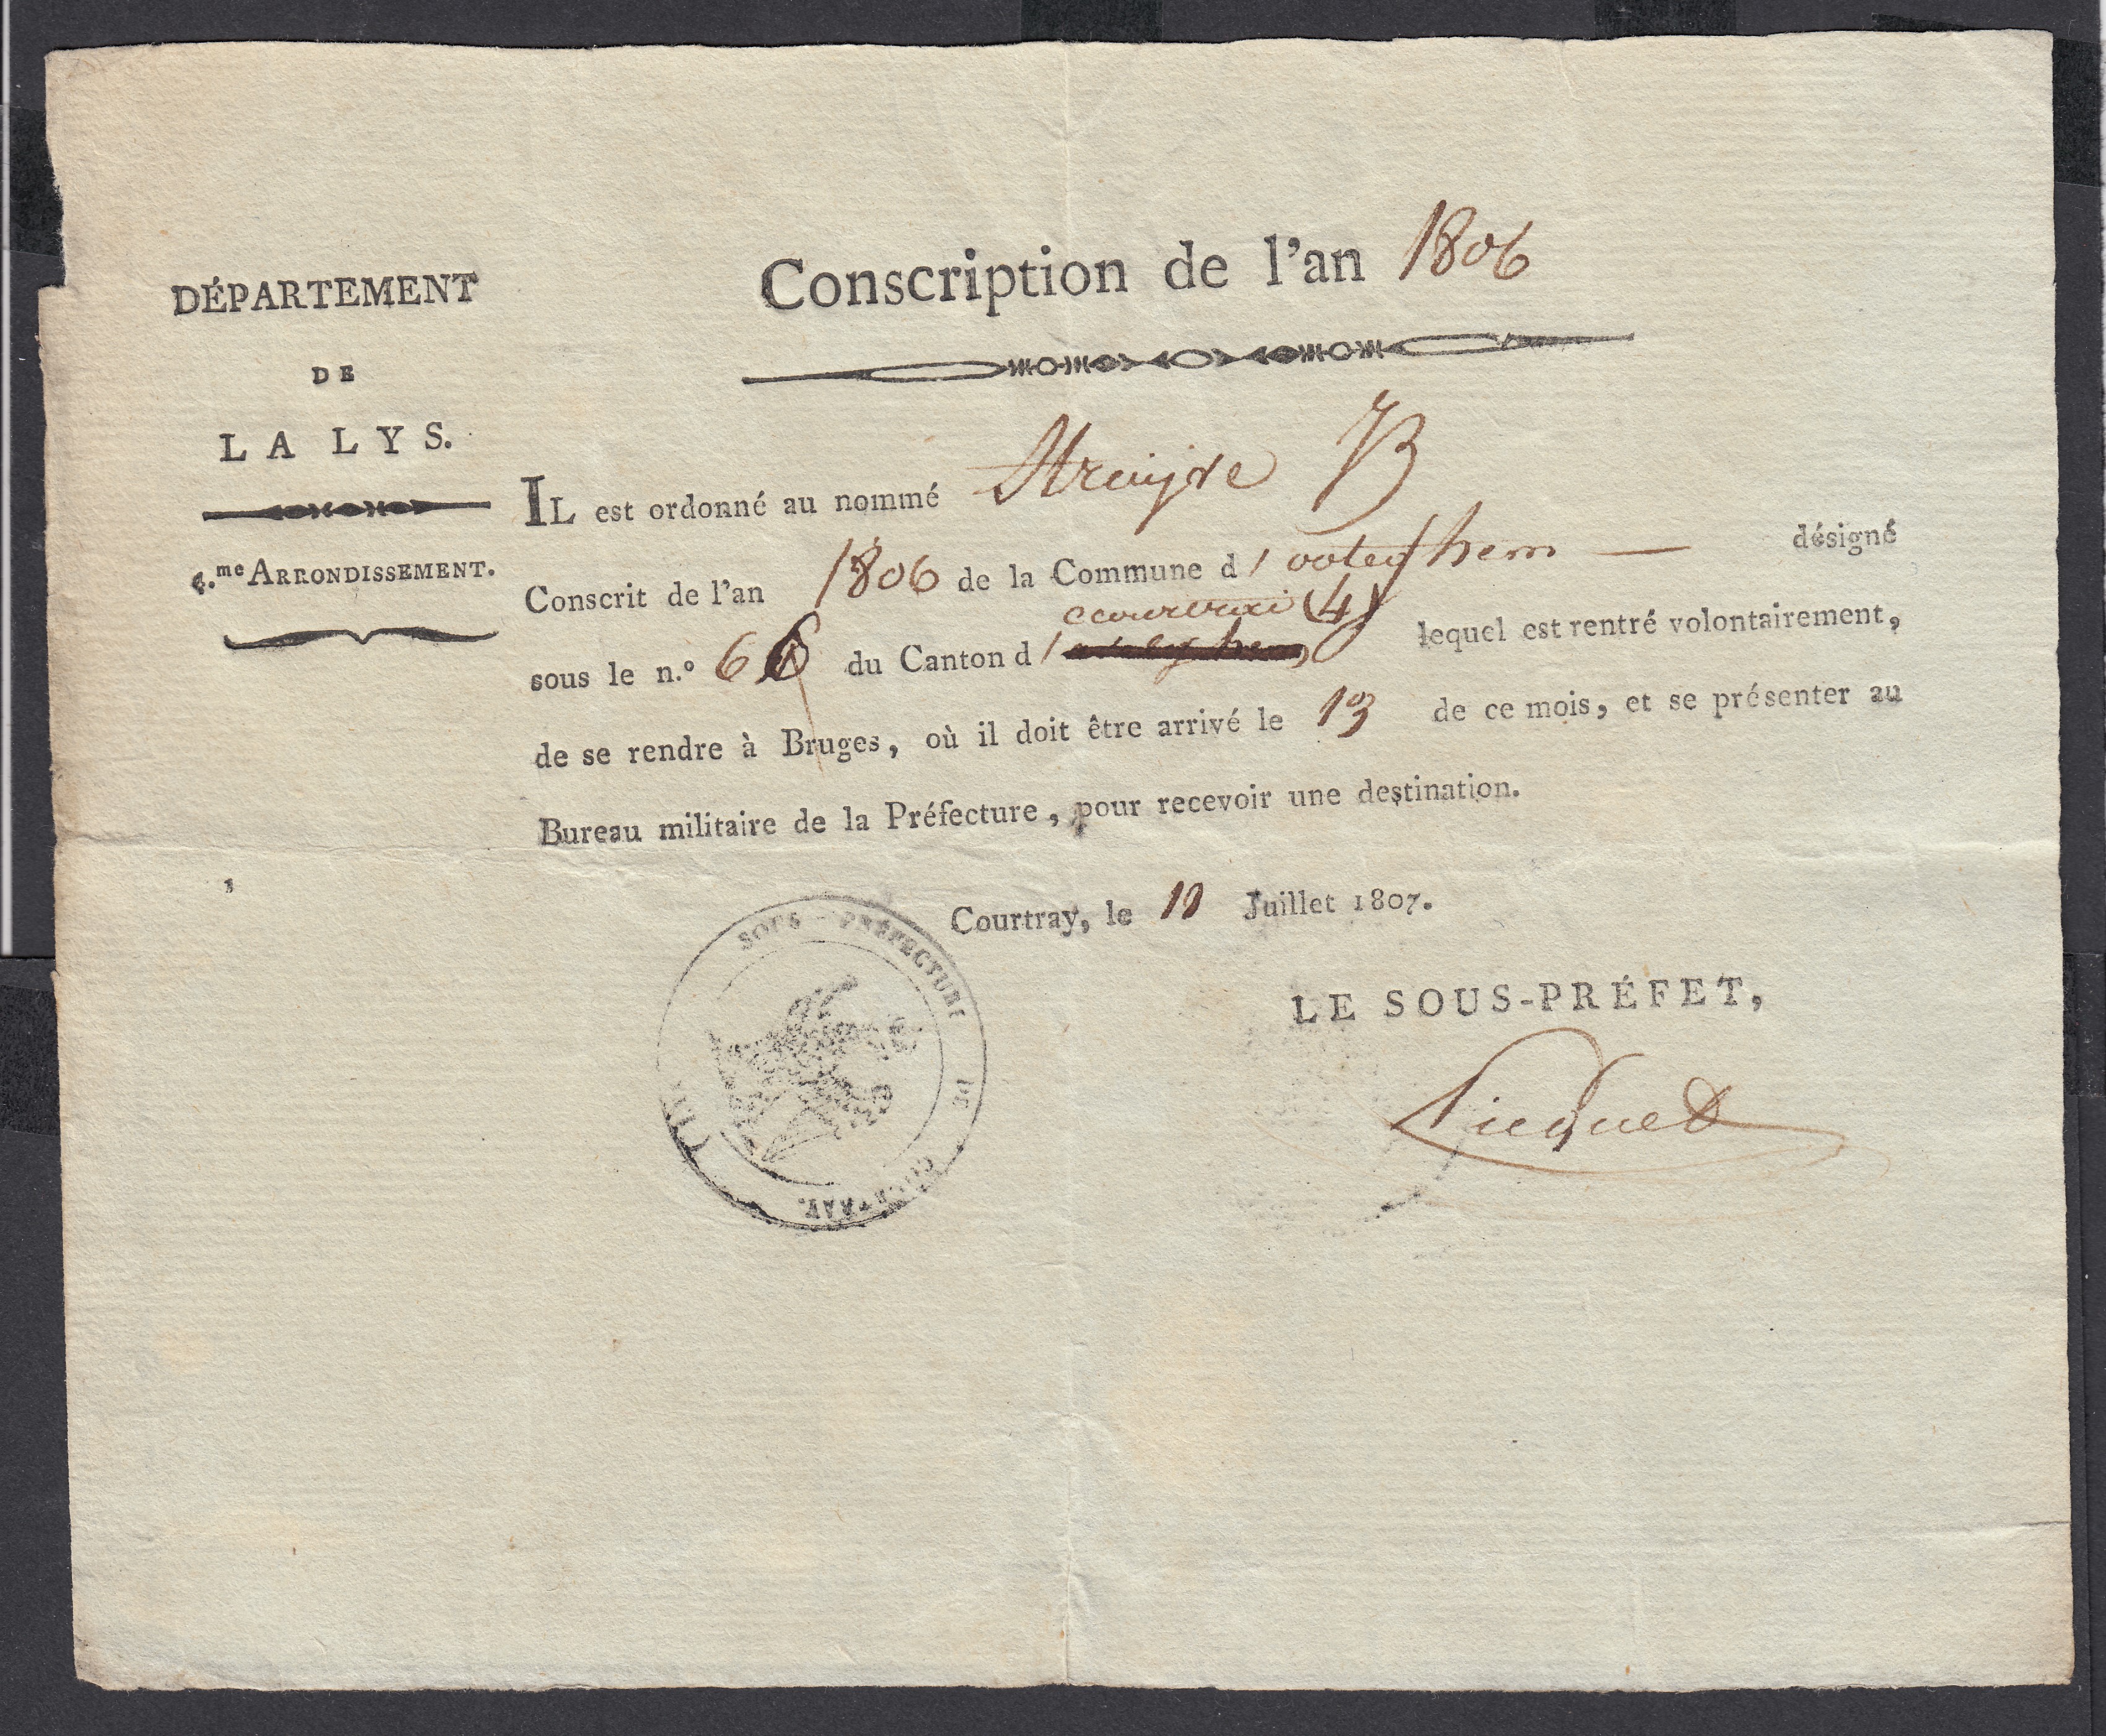 Conscription de l'an 1806
DÉPARTEMENT
DE
LA LYS.
4.me ARRONDISSEMENT.
IL est ordonné au nommé Struyve B
Conscrit de l'an 1806 de la Commune d'ooteghem — désigné
(4)
sous le n.º 66 du Canton d' lequel est rentré volontairement,
de se rendre à Bruges, où il doit être arrivé le 13 de ce mois, et se présenter au
Bureau militaire de la Préfecture, pour recevoir une destination.
Courtray, le 11 Juillet 1807.
SOUS-PRÉFECTURE DE COURTRAY.
LE SOUS-PRÉFET,
Picquet